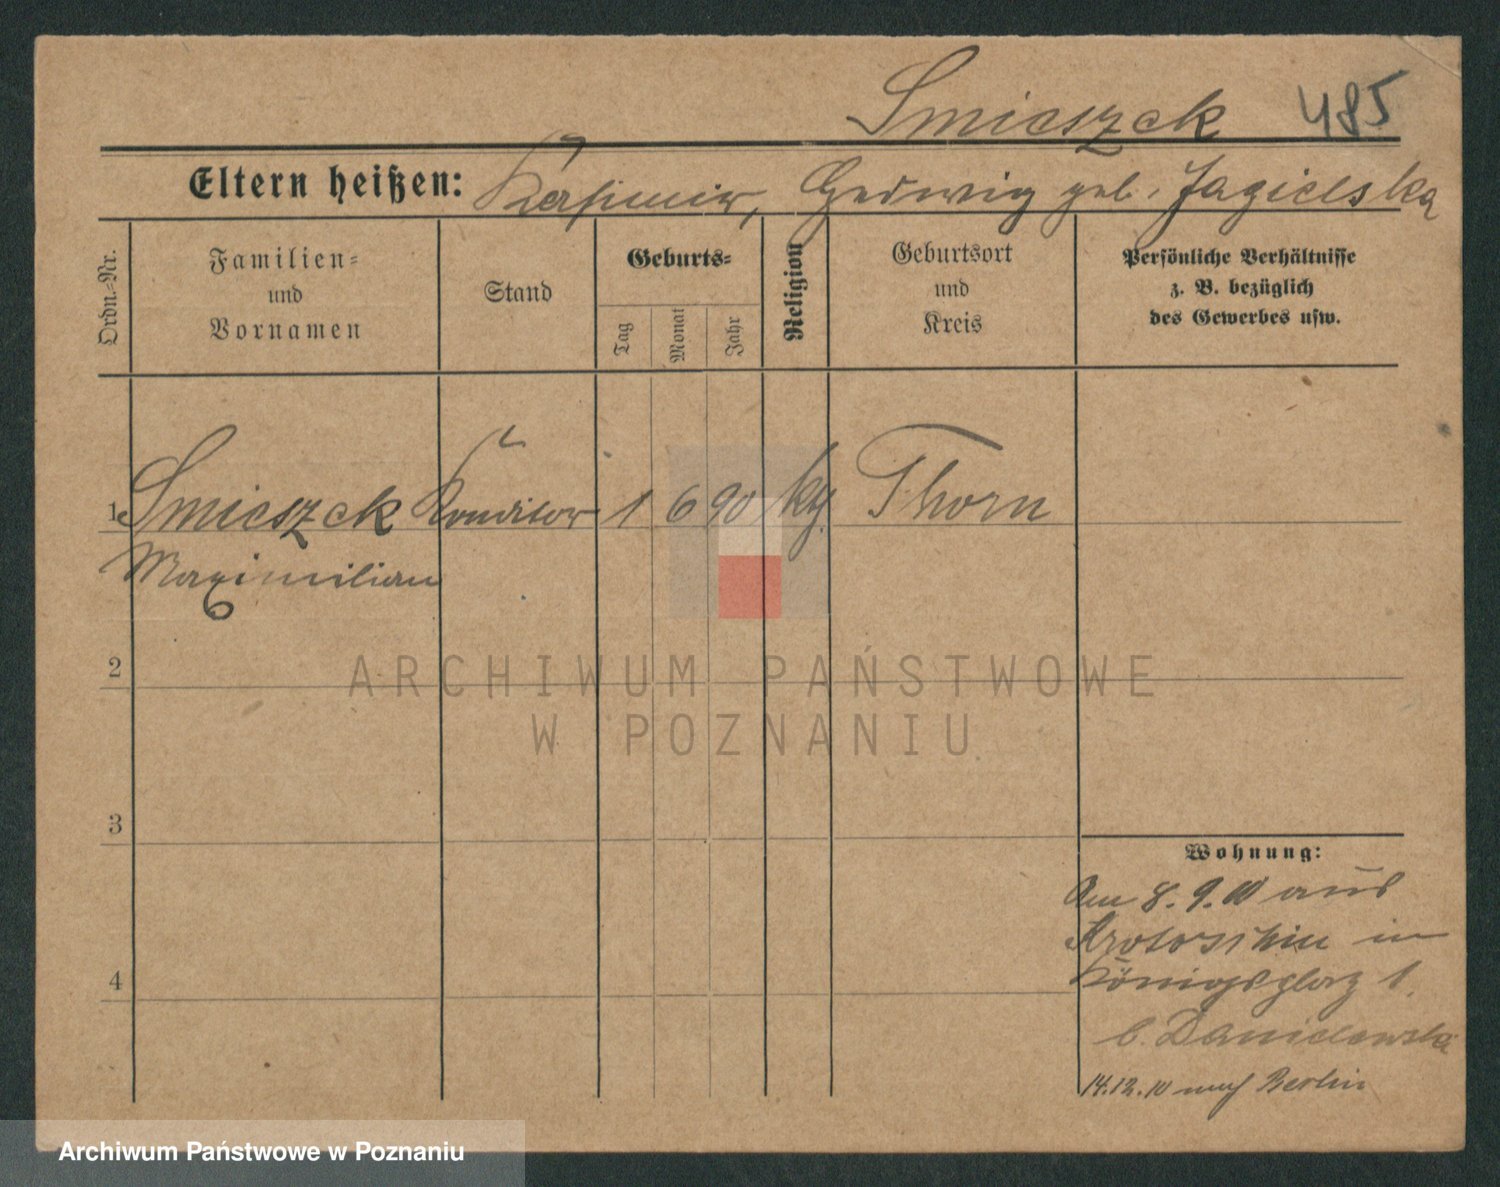 Smieszek 485
Eltern heißen: Kasimir, Hedwig geb. Jagielska
Ordn.-Nr.
Familien-
und
Vornamen
Stand
Geburts-
Tag
Monat
Jahr
Religion
Geburtsort
und
Kreis
Persönliche Verhältnisse
z. B. bezüglich
des Gewerbes usw.
1 Smieszek Konditor 1 6 90 kth. Thorn
Maximilian
2
ARCHIWUM PAŃSTWOWE
W POZNANIU
3
Wohnung:
Am 8.9.10 aus
Krotoschin in
4
Königsplatz 1.
b. Danielewski
14.12.10 nach Berlin
Archiwum Państwowe w Poznaniu